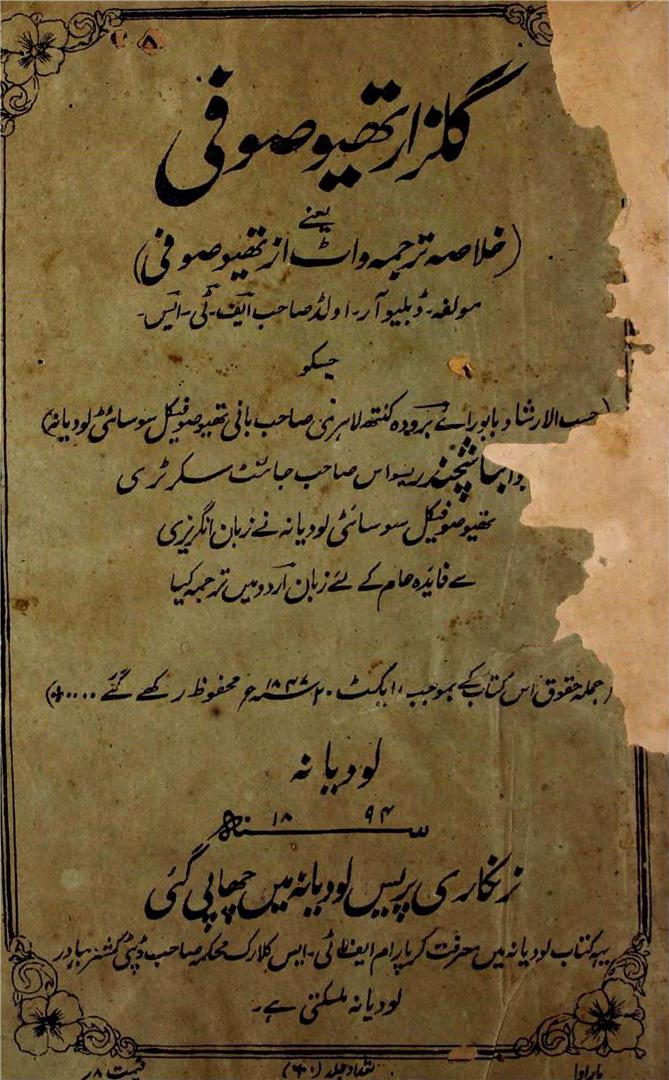 گلزار تھیوصوفی
یعنے
(خلاصہ ترجمہ واٹ از تھیوصوفی)
مولفہ۔ ڈبلیو آر۔ اولڈ صاحب ایف۔ ٹی۔ ایس۔
جسکو
(حسب الارشاد بابو راے بروده کنتھ لاہڑی صاحب بانی تھیوصوفیکل سوسائٹی لودیانہ)
بسواس صاحب جائنٹ سکرٹری
تھیوصوفیکل سوسائٹی لودیانہ نے زبان انگریزی
سے فائدہ عام کے لئے زبان اردو میں ترجمہ کیا
(جملہ حقوق اس کتاب کے بموجب ایکٹ ۲۰ سنہ ۱۸۴۷ع محفوظ رکھے گئے ....)
لودیانہ
سنہ ۱۸۹۴
نرنکاری پریس لودیانہ میں چھاپی گئی
یہہ کتاب لودیانہ میں معرفت کرپارام ایف ٹی۔ ایس کلارک محکمہ صاحب ڈپٹی کمشنر بہادر
لودیانہ ملسکتی ہے۔
باراول
تعداد جلد
قیمت ۸ر